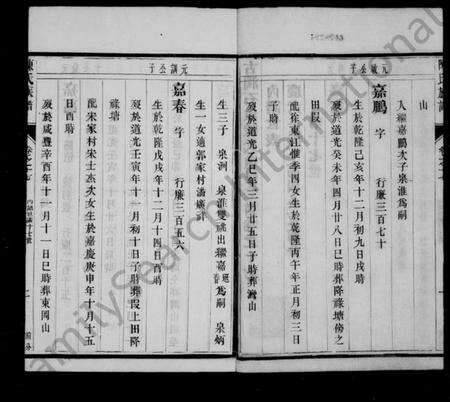 山
入繼嘉鵬次子泉淮爲嗣
元訓公子
嘉鵬 字 行廉三百七十
生於乾隆己亥年十二月初九日戌時
歿於道光癸未年四月廿八日巳時葬降祿塘傍之
田段
配徐東江惟季四女生於乾隆丙午年正月初三日
子時
歿於道光乙巳年三月廿五日子時葬灣山
生三子 泉洲 泉淮雙祧出繼嘉鵬爲嗣 泉炳
生一女適郭家村潘
元訓公子
嘉春 字 行廉三百五六
生於乾隆戊戌年十二月十四日酉時
歿於道光壬寅年十一月初十日子時葬段上田降
祿塘
配宋家村宋士杰次女生於嘉慶庚申年十月十五
日酉時
歿於咸豐辛酉年十一月十一日巳時葬東岡山
陳氏族譜
FamilySearch International